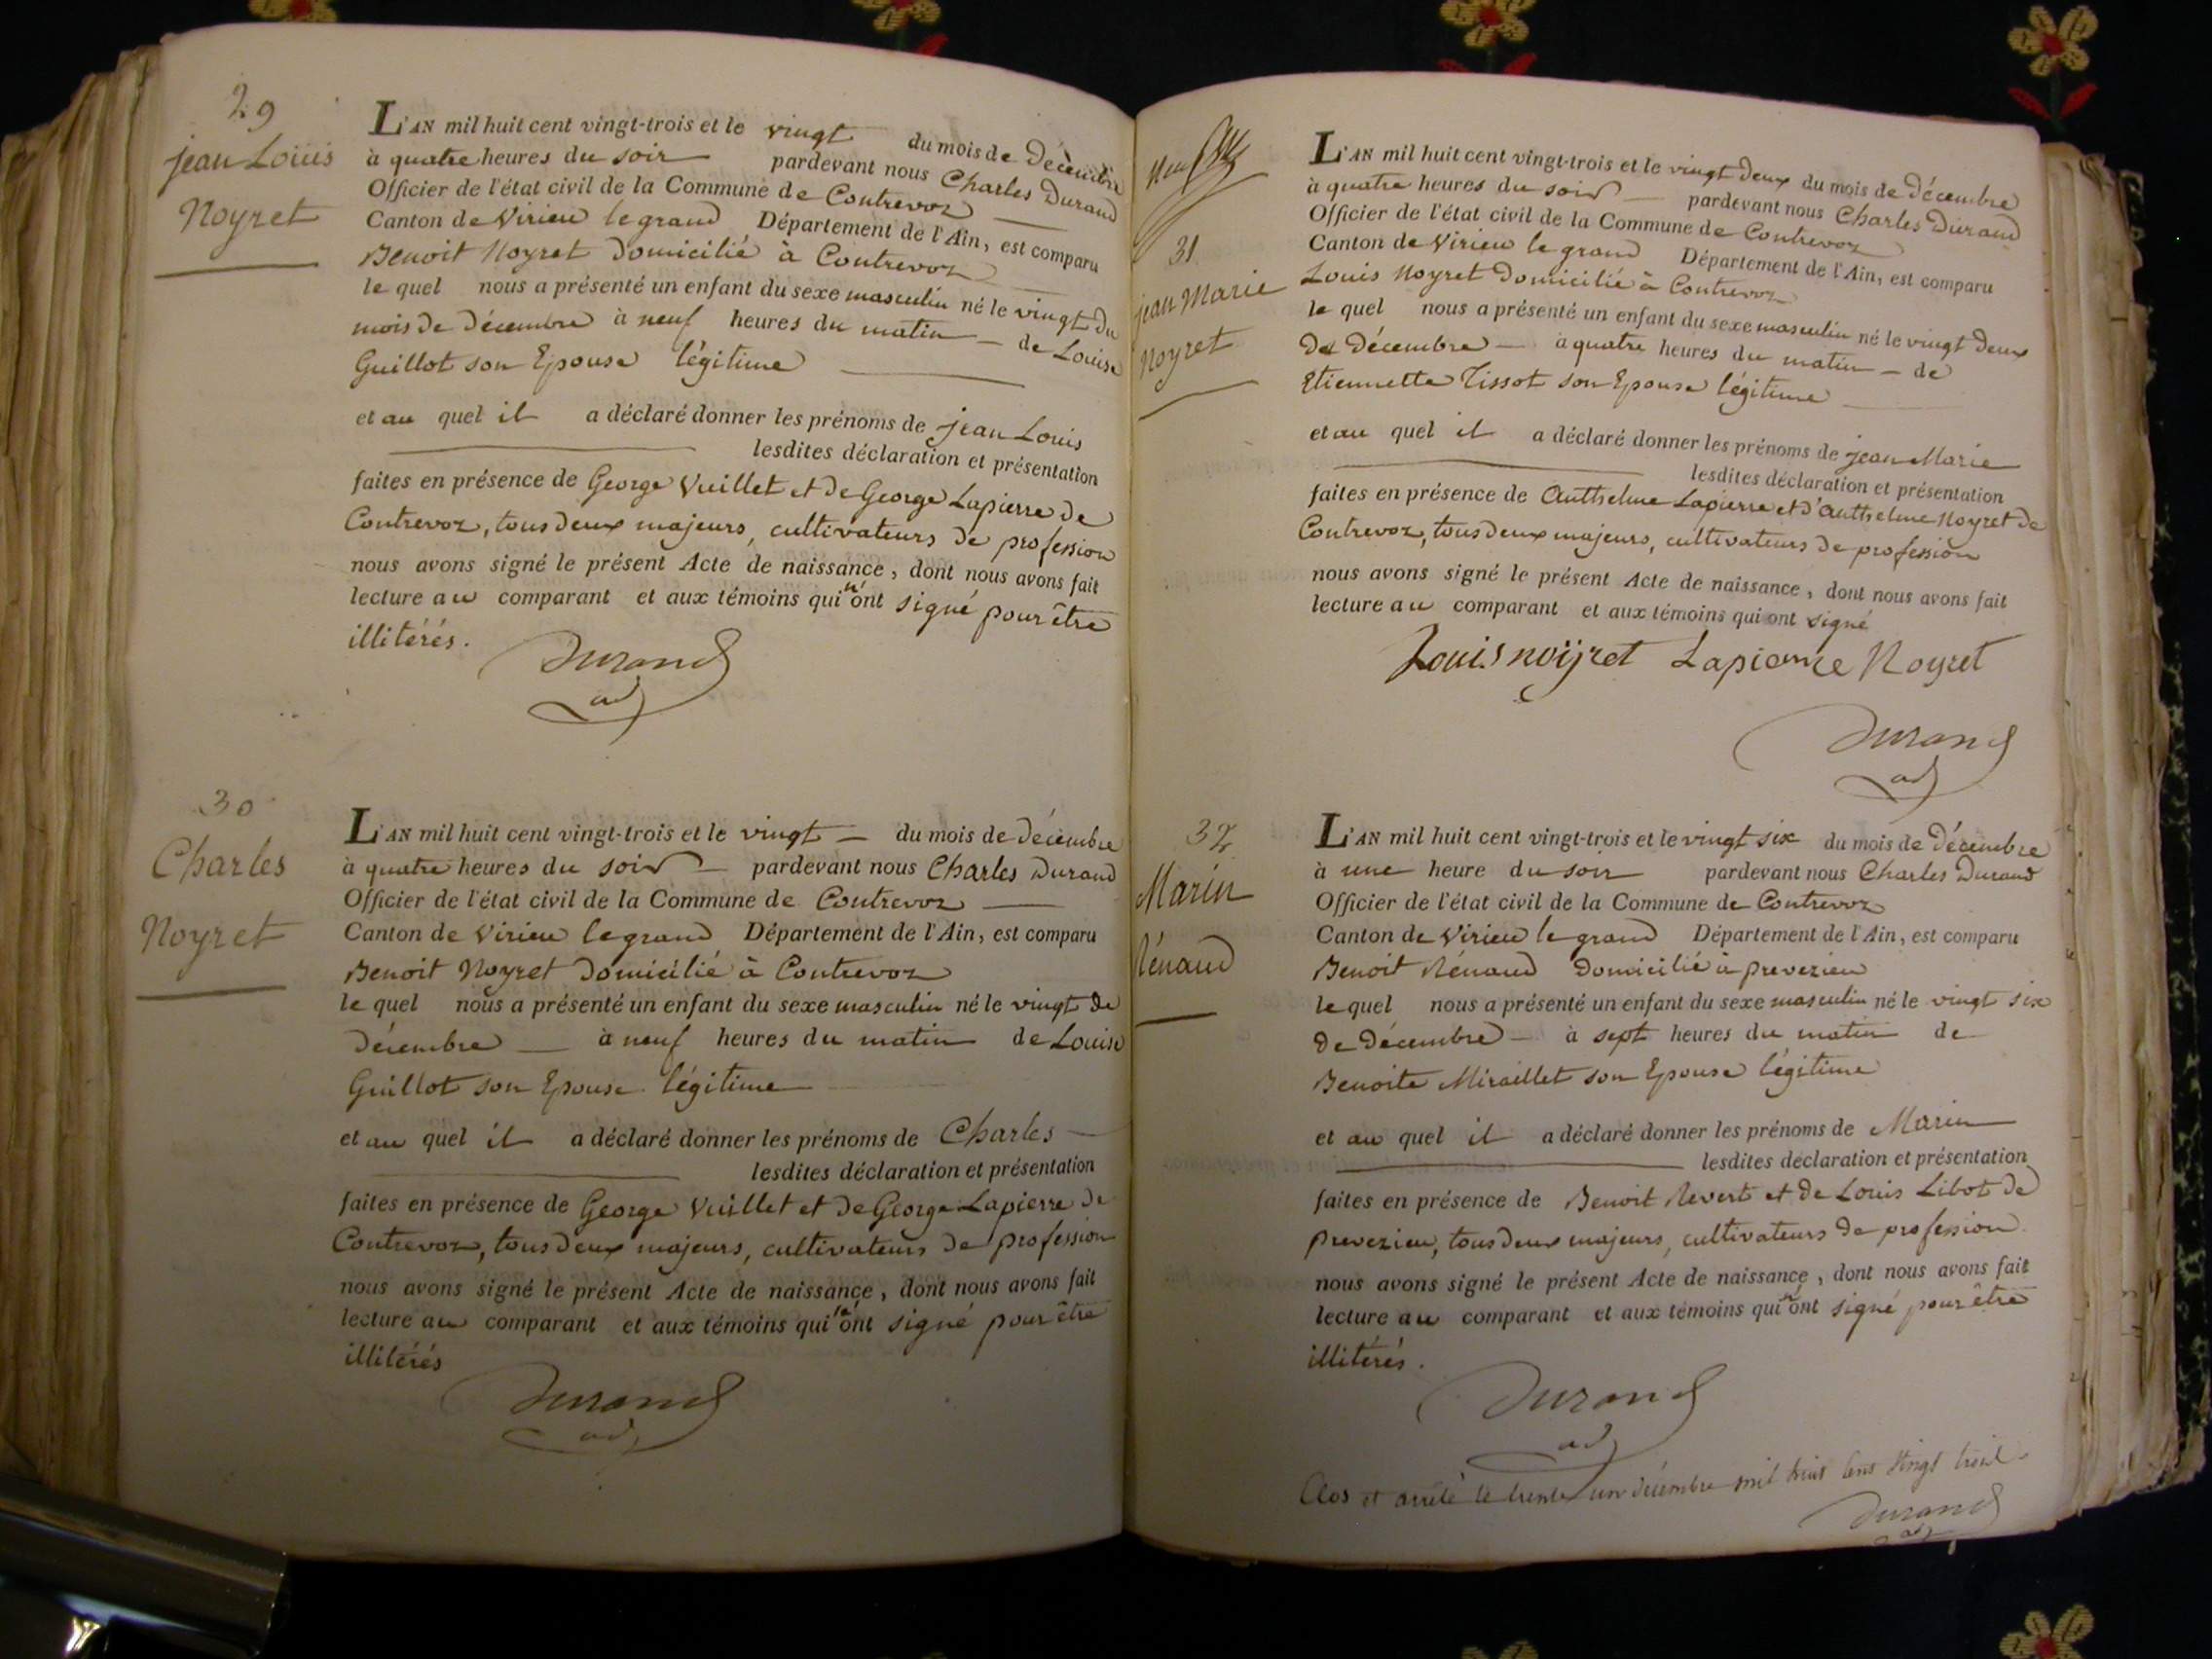 29
jean Louis
Noyret
L'AN mil huit cent vingt-trois et le vingt du mois de Décembre
à quatre heures du soir pardevant nous Charles Durand
Officier de l'état civil de la Commune de Contrevoz
Canton de Virieu le grand Département de l'Ain, est comparu
Benoit Noyret Domicilié à Contrevoz
le quel nous a présenté un enfant du sexe masculin né le vingt du
mois de Décembre à neuf heures du matin de Louise
Guillot son Epouse légitime
et au quel il a déclaré donner les prénoms de jean Louis
lesdites déclaration et présentation
faites en présence de George Vuillet et de George Lapierre de
Contrevoz, tous deux majeurs, cultivateurs de profession
nous avons signé le présent Acte de naissance, dont nous avons fait
lecture au comparant et aux témoins qui n'ont signé pour être
illitérés.
Durand
adj
30
Charles
Noyret
L'AN mil huit cent vingt-trois et le vingt du mois de Décembre
à quatre heures du soir pardevant nous Charles Durand
Officier de l'état civil de la Commune de Contrevoz
Canton de Virieu le grand Département de l'Ain, est comparu
Benoit Noyret Domicilié à Contrevoz
le quel nous a présenté un enfant du sexe masculin né le vingt de
Décembre à neuf heures du matin de Louise
Guillot son Epouse légitime
et au quel il a déclaré donner les prénoms de Charles
lesdites déclaration et présentation
faites en présence de George Vuillet et de George Lapierre de
Contrevoz, tous deux majeurs, cultivateurs de profession
nous avons signé le présent Acte de naissance, dont nous avons fait
lecture au comparant et aux témoins qui n'ont signé pour être
illitérés
Durand
adj
31
jean Marie
Noyret
L'AN mil huit cent vingt-trois et le vingt Deux du mois de Décembre
à quatre heures du soir pardevant nous Charles Durand
Officier de l'état civil de la Commune de Contrevoz
Canton de Virieu le grand Département de l'Ain, est comparu
Louis Noyret Domicilié à Contrevoz
le quel nous a présenté un enfant du sexe masculin né le vingt Deux
De Décembre à quatre heures du matin de
Etiennette Tissot son Epouse légitime
et au quel il a déclaré donner les prénoms de jean Marie
lesdites déclaration et présentation
faites en présence de Anthelme Lapierre et d'Anthelme Noyret de
Contrevoz, tous deux majeurs, cultivateurs de profession
nous avons signé le présent Acte de naissance, dont nous avons fait
lecture au comparant et aux témoins qui ont signé
Louis noÿret Lapierre Noyret
Durand
adj
32
Marin
Rénaud
L'AN mil huit cent vingt-trois et le vingt six du mois de Décembre
à une heure du soir pardevant nous Charles Durand
Officier de l'état civil de la Commune de Contrevoz
Canton de Virieu le grand Département de l'Ain, est comparu
Benoit Rénaud Domicilié à prevezieu
le quel nous a présenté un enfant du sexe masculin né le vingt six
de Décembre à sept heures du matin de
Benoite Miraillet son Epouse légitime
et au quel il a déclaré donner les prénoms de Marin
lesdites déclaration et présentation
faites en présence de Benoit Revert et de Louis Libot de
prevezieu, tous deux majeurs, cultivateurs de profession
nous avons signé le présent Acte de naissance, dont nous avons fait
lecture au comparant et aux témoins qui n'ont signé pour être
illitérés.
Durand
adj
Clos et arrêté le trente un décembre mil huit cent vingt trois
Durand
adj